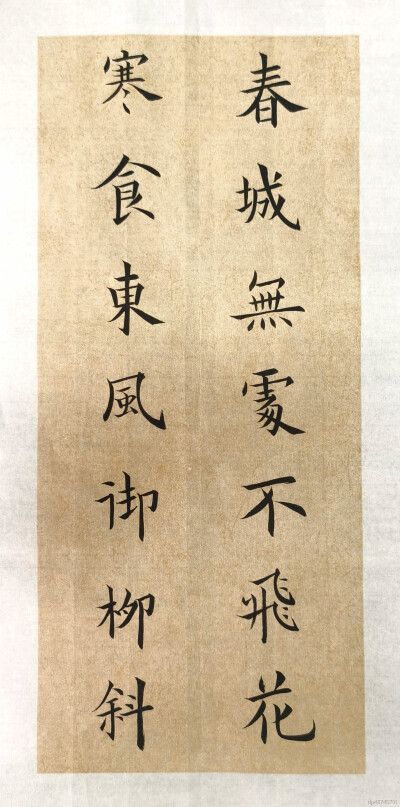 春城無處不飛花
寒食東風御柳斜